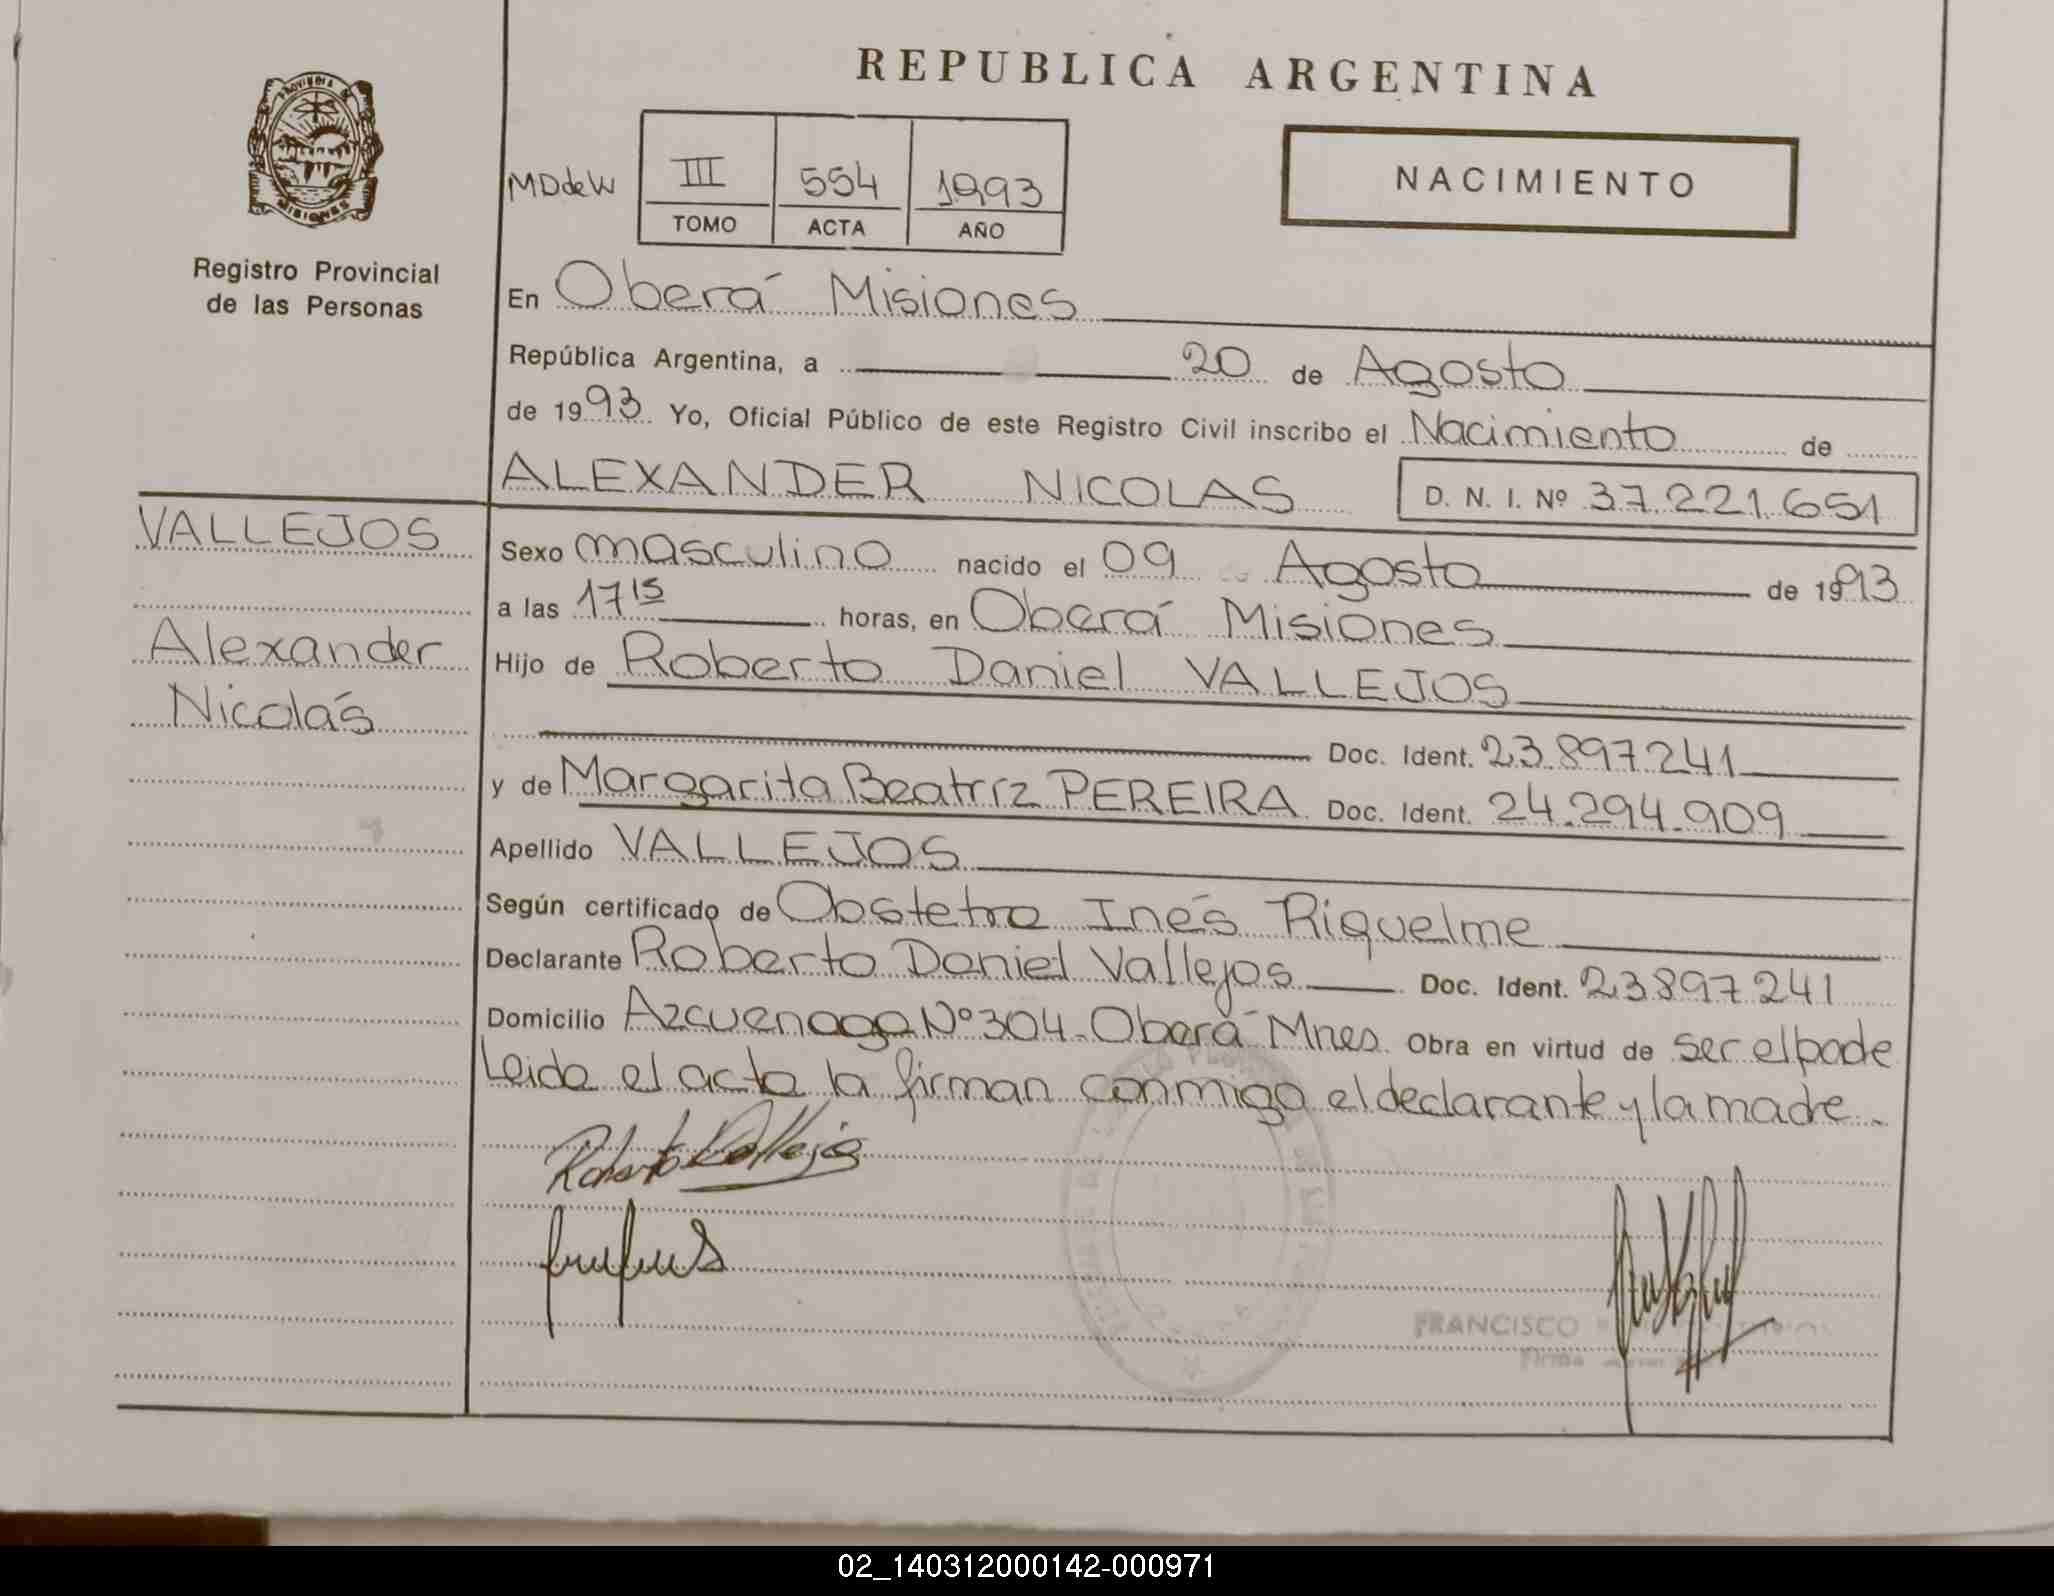 REPUBLICA ARGENTINA
PROVINCIA DE
MISIONES
Registro Provincial
de las Personas
MDdeW
III 554 1993
TOMO ACTA AÑO
NACIMIENTO
En Oberá Misiones
República Argentina, a 20 de Agosto
de 1993 Yo, Oficial Público de este Registro Civil inscribo el Nacimiento de
ALEXANDER NICOLAS D. N. I. Nº 37.221.651
VALLEJOS
Alexander
Nicolás
Sexo masculino nacido el 09 Agosto de 1993
a las 17 15 horas, en Oberá Misiones
Hijo de Roberto Daniel VALLEJOS
Doc. Ident. 23.897.241
y de Margarita Beatríz PEREIRA Doc. Ident. 24.294.909
Apellido VALLEJOS
Según certificado de Obstetra Inés Riquelme
Declarante Roberto Daniel Vallejos Doc. Ident. 23897241
Domicilio Azcuenaga Nº 304-Oberá Mnes. Obra en virtud de ser el pade
Leida el acta la firman conmigo el declarante y la madre.
Roberto Vallejos
FRANCISCO
Firma
02_140312000142-000971